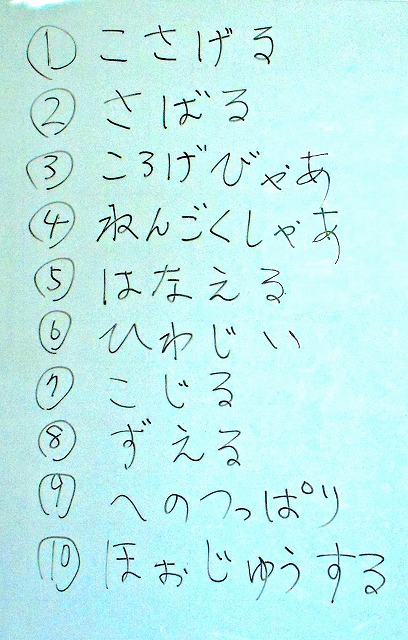 ① こさげる
② さばる
③ ころげびゃあ
④ ねんごくしゃあ
⑤ はなえる
⑥ ひわじい
⑦ こじる
⑧ ずえる
⑨ へのつっぱり
⑩ ほおじゅうする